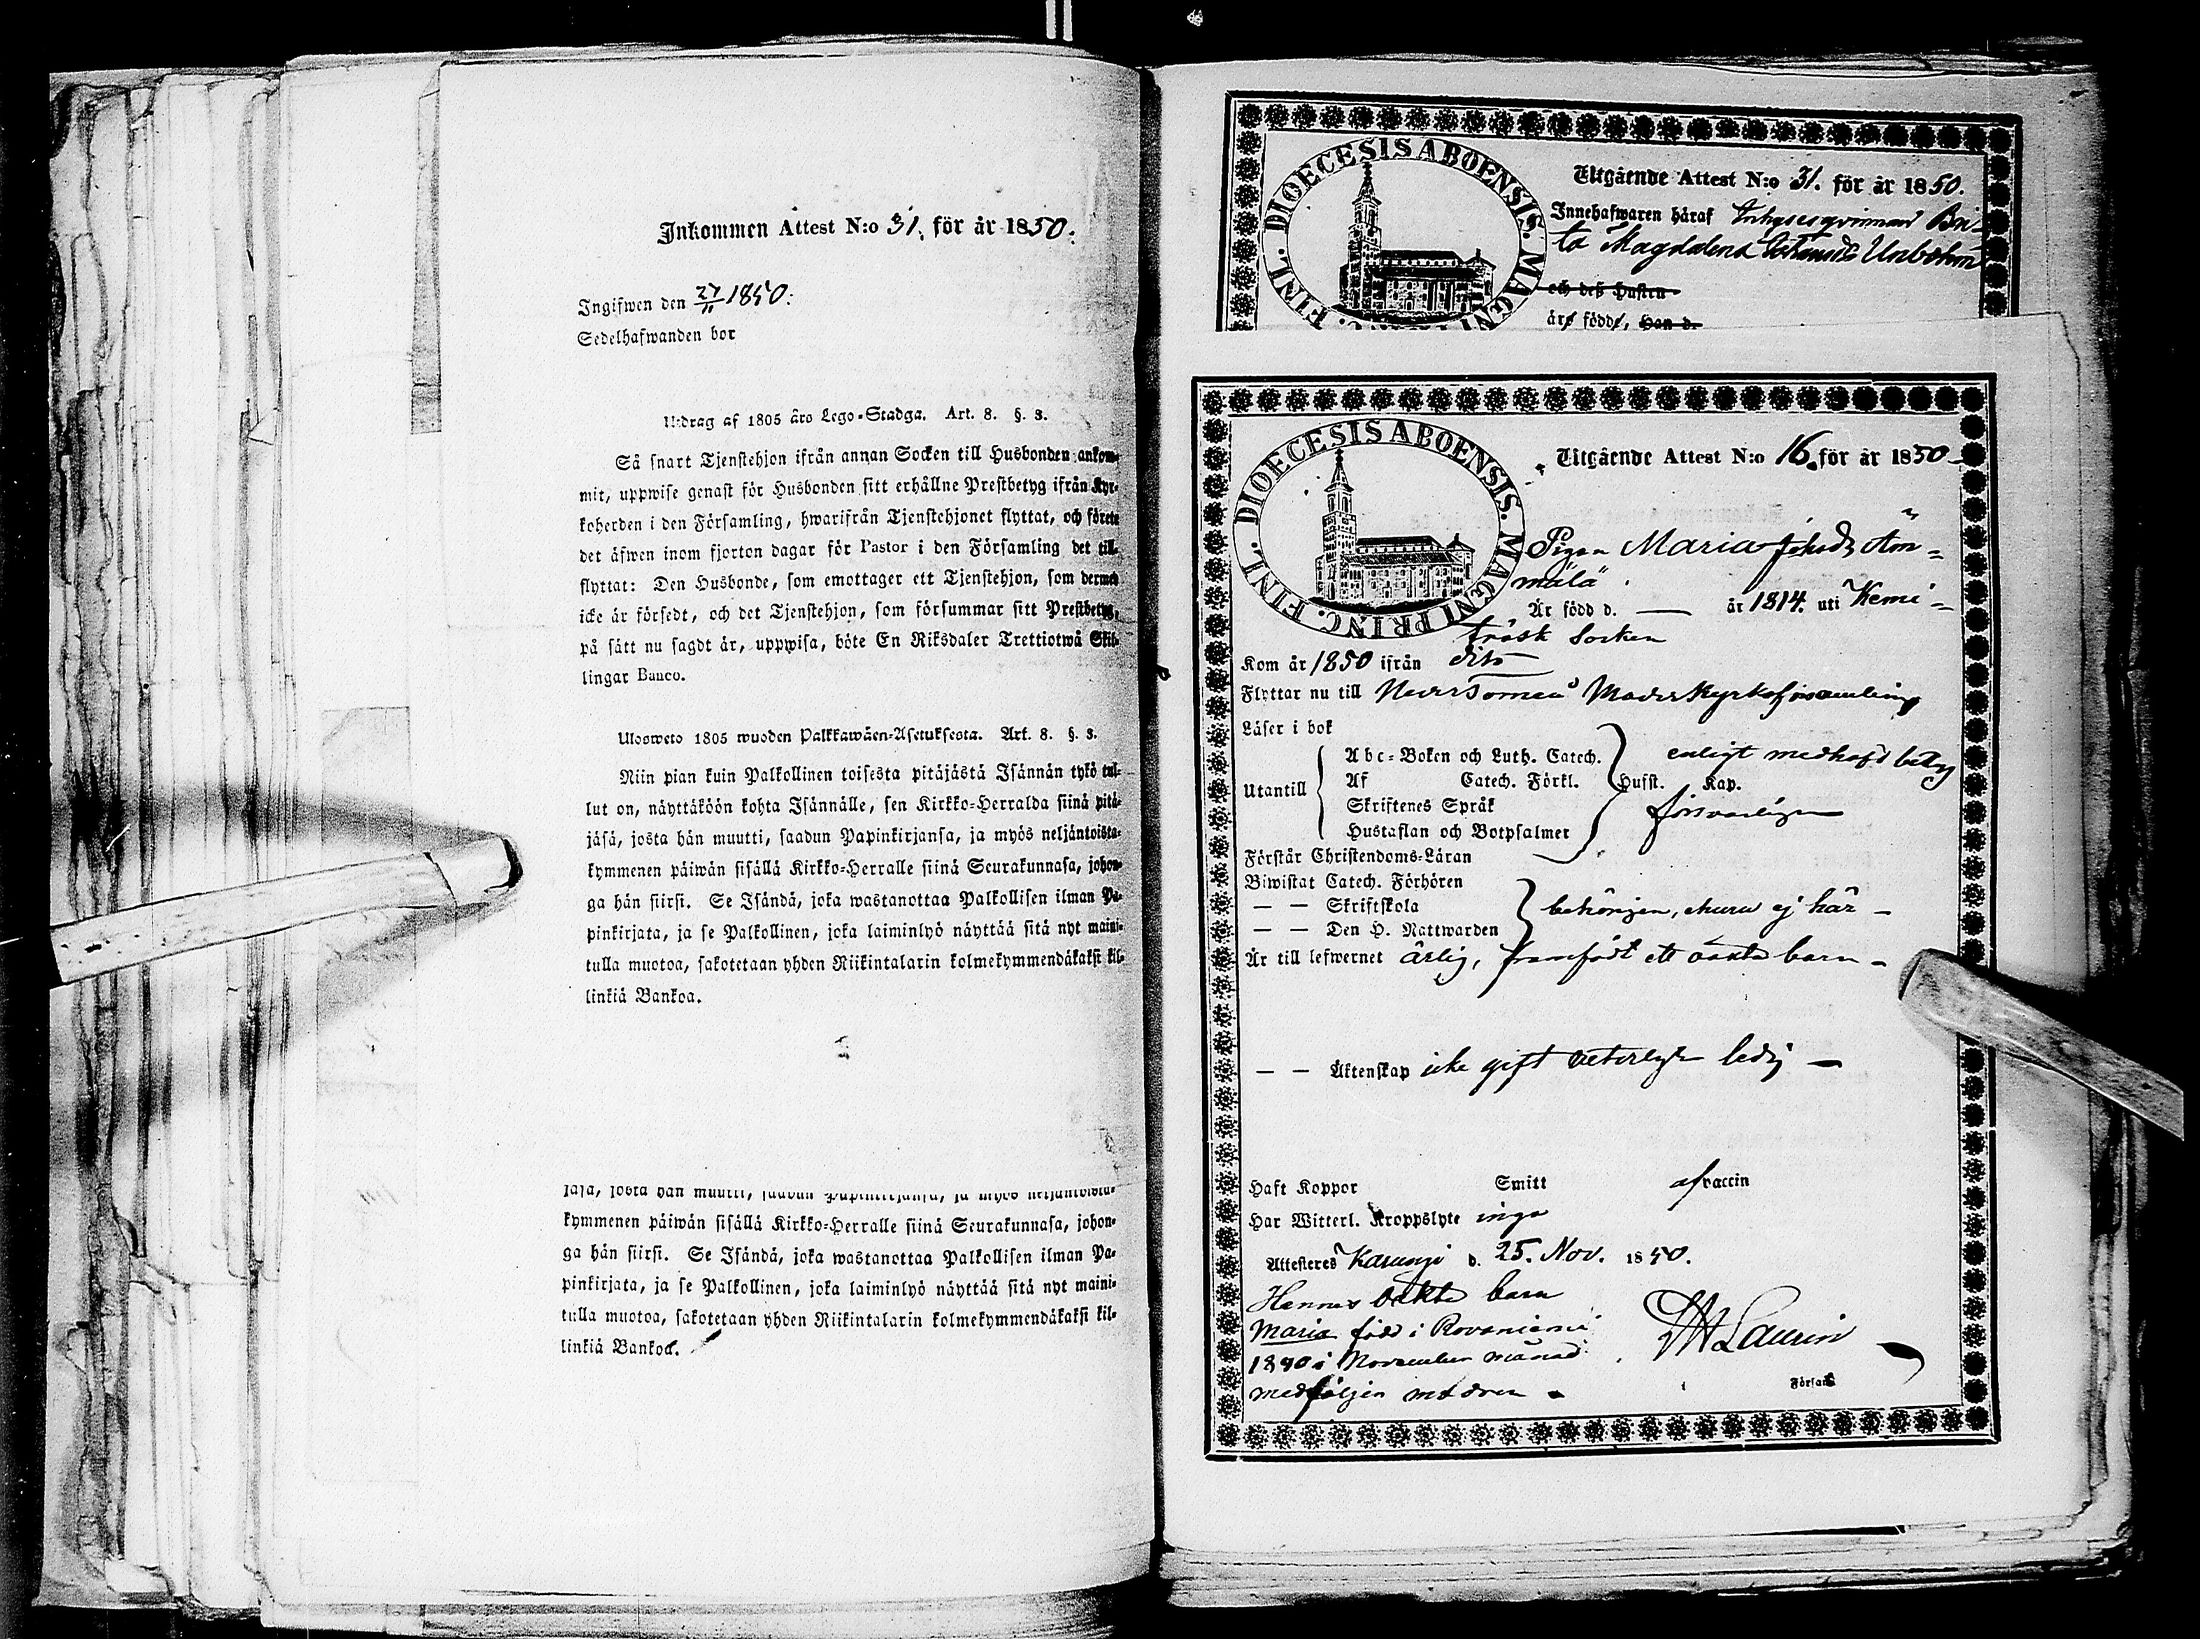 Inkommen Attest N:o 31. för år 1850.
Ingifwen den 27/11 1850.
Sedelhafwanden bor
Utdrag af 1805 års Lego-Stadga. Art. 8. §. 3.
Så snart Tjenstehjon ifrån annan Socken till Husbonden ankom-
mit, uppwise genast för Husbonden sitt erhållne Prestbetyg ifrån Kyr-
koherden i den Församling, hwarifrån Tjenstehjonet flyttat, och förete
det äfwen inom fjorton dagar för Pastor i den Församling det till-
flyttat: Den Husbonde, som emottager ett Tjenstehjon, som dermed
icke är försedt, och det Tjenstehjon, som försummar sitt Prestbetyg,
på sätt nu sagdt är, uppwisa, böte En Riksdaler Trettiotwå Skil-
lingar Banco.
Ulosweto 1805 wuoden Palkkawäen-Asetuksesta. Art. 8. §. 3.
Niin pian kuin Palkollinen toisesta pitäjästä Isännän tykö tul-
lut on, näyttäköön kohta Isännälle, sen Kirkko-Herralda siinä pitä-
jäsä, josta hän muutti, saadun Papinkirjansa, ja myös neljäntoista-
kymmenen päiwän sisällä Kirkko-Herralle siinä Seurakunnasa, johon-
ga hän siirsi. Se Isändä, joka wastanottaa Palkollisen ilman Pa-
pinkirjata, ja se Palkollinen, joka laiminlyö näyttää sitä nyt maini-
tulla muotoa, sakotetaan yhden Riikintalarin kolmekymmendäkaksi kil-
linkiä Bankoa.
jäsä, josta hän muutti, saadun Papinkirjansa, ja myös neljäntoista-
kymmenen päiwän sisällä Kirkko-Herralle siinä Seurakunnasa, johon-
ga hän siirsi. Se Isändä, joka wastanottaa Palkollisen ilman Pa-
pinkirjata, ja se Palkollinen, joka laiminlyö näyttää sitä nyt maini-
tulla muotoa, sakotetaan yhden Riikintalarin kolmekymmendäkaksi kil-
linkiä Bankoa.
DIOECESIS ABOENSIS. MAGNI PRINC. FINL.
Utgående Attest N:o 31. för år 1850.
Innehafwaren häraf Inhysesqvinnan Bri-
ta Magdalena
och deß Hustru
äro födde, Han d.
DIOECESIS ABOENSIS. MAGNI PRINC. FINL.
Utgående Attest N:o 16. för år 1850
Pigan Maria Johsdr
Är född d. — år 1814. uti Kemi-
träsk Socken
Kom år 1850 ifrån dito
Flyttar nu till Neder Torneå Moderkyrkoförsamling
Läser i bok
Utantill
Abc-Boken och Luth. Catech.
enligt medhafd betyg
Af Catech. Förkl. Hufst. Kap.
Skriftenes Språk
försvarligen
Hustaflan och Botpsalmer
Förstår Christendoms-Läran
Biwistat Catech. Förhören
— — Skriftskola
behörigen, ehuru ej här —
— — Den H. Nattwarden
Är till lefwernet ärlig, framfödt ett oäkta barn —
— — Äktenskap icke gift veterligen ledig —
Haft Koppor Smitt af vaccin
Har Witterl. Kroppslyte inga
Attesteres Karungi d. 25. Nov. 1850.
Hennes oäkta barn
Maria född i Rovaniemi
1840 i November månad
medföljer modren
Laurin
Församl.